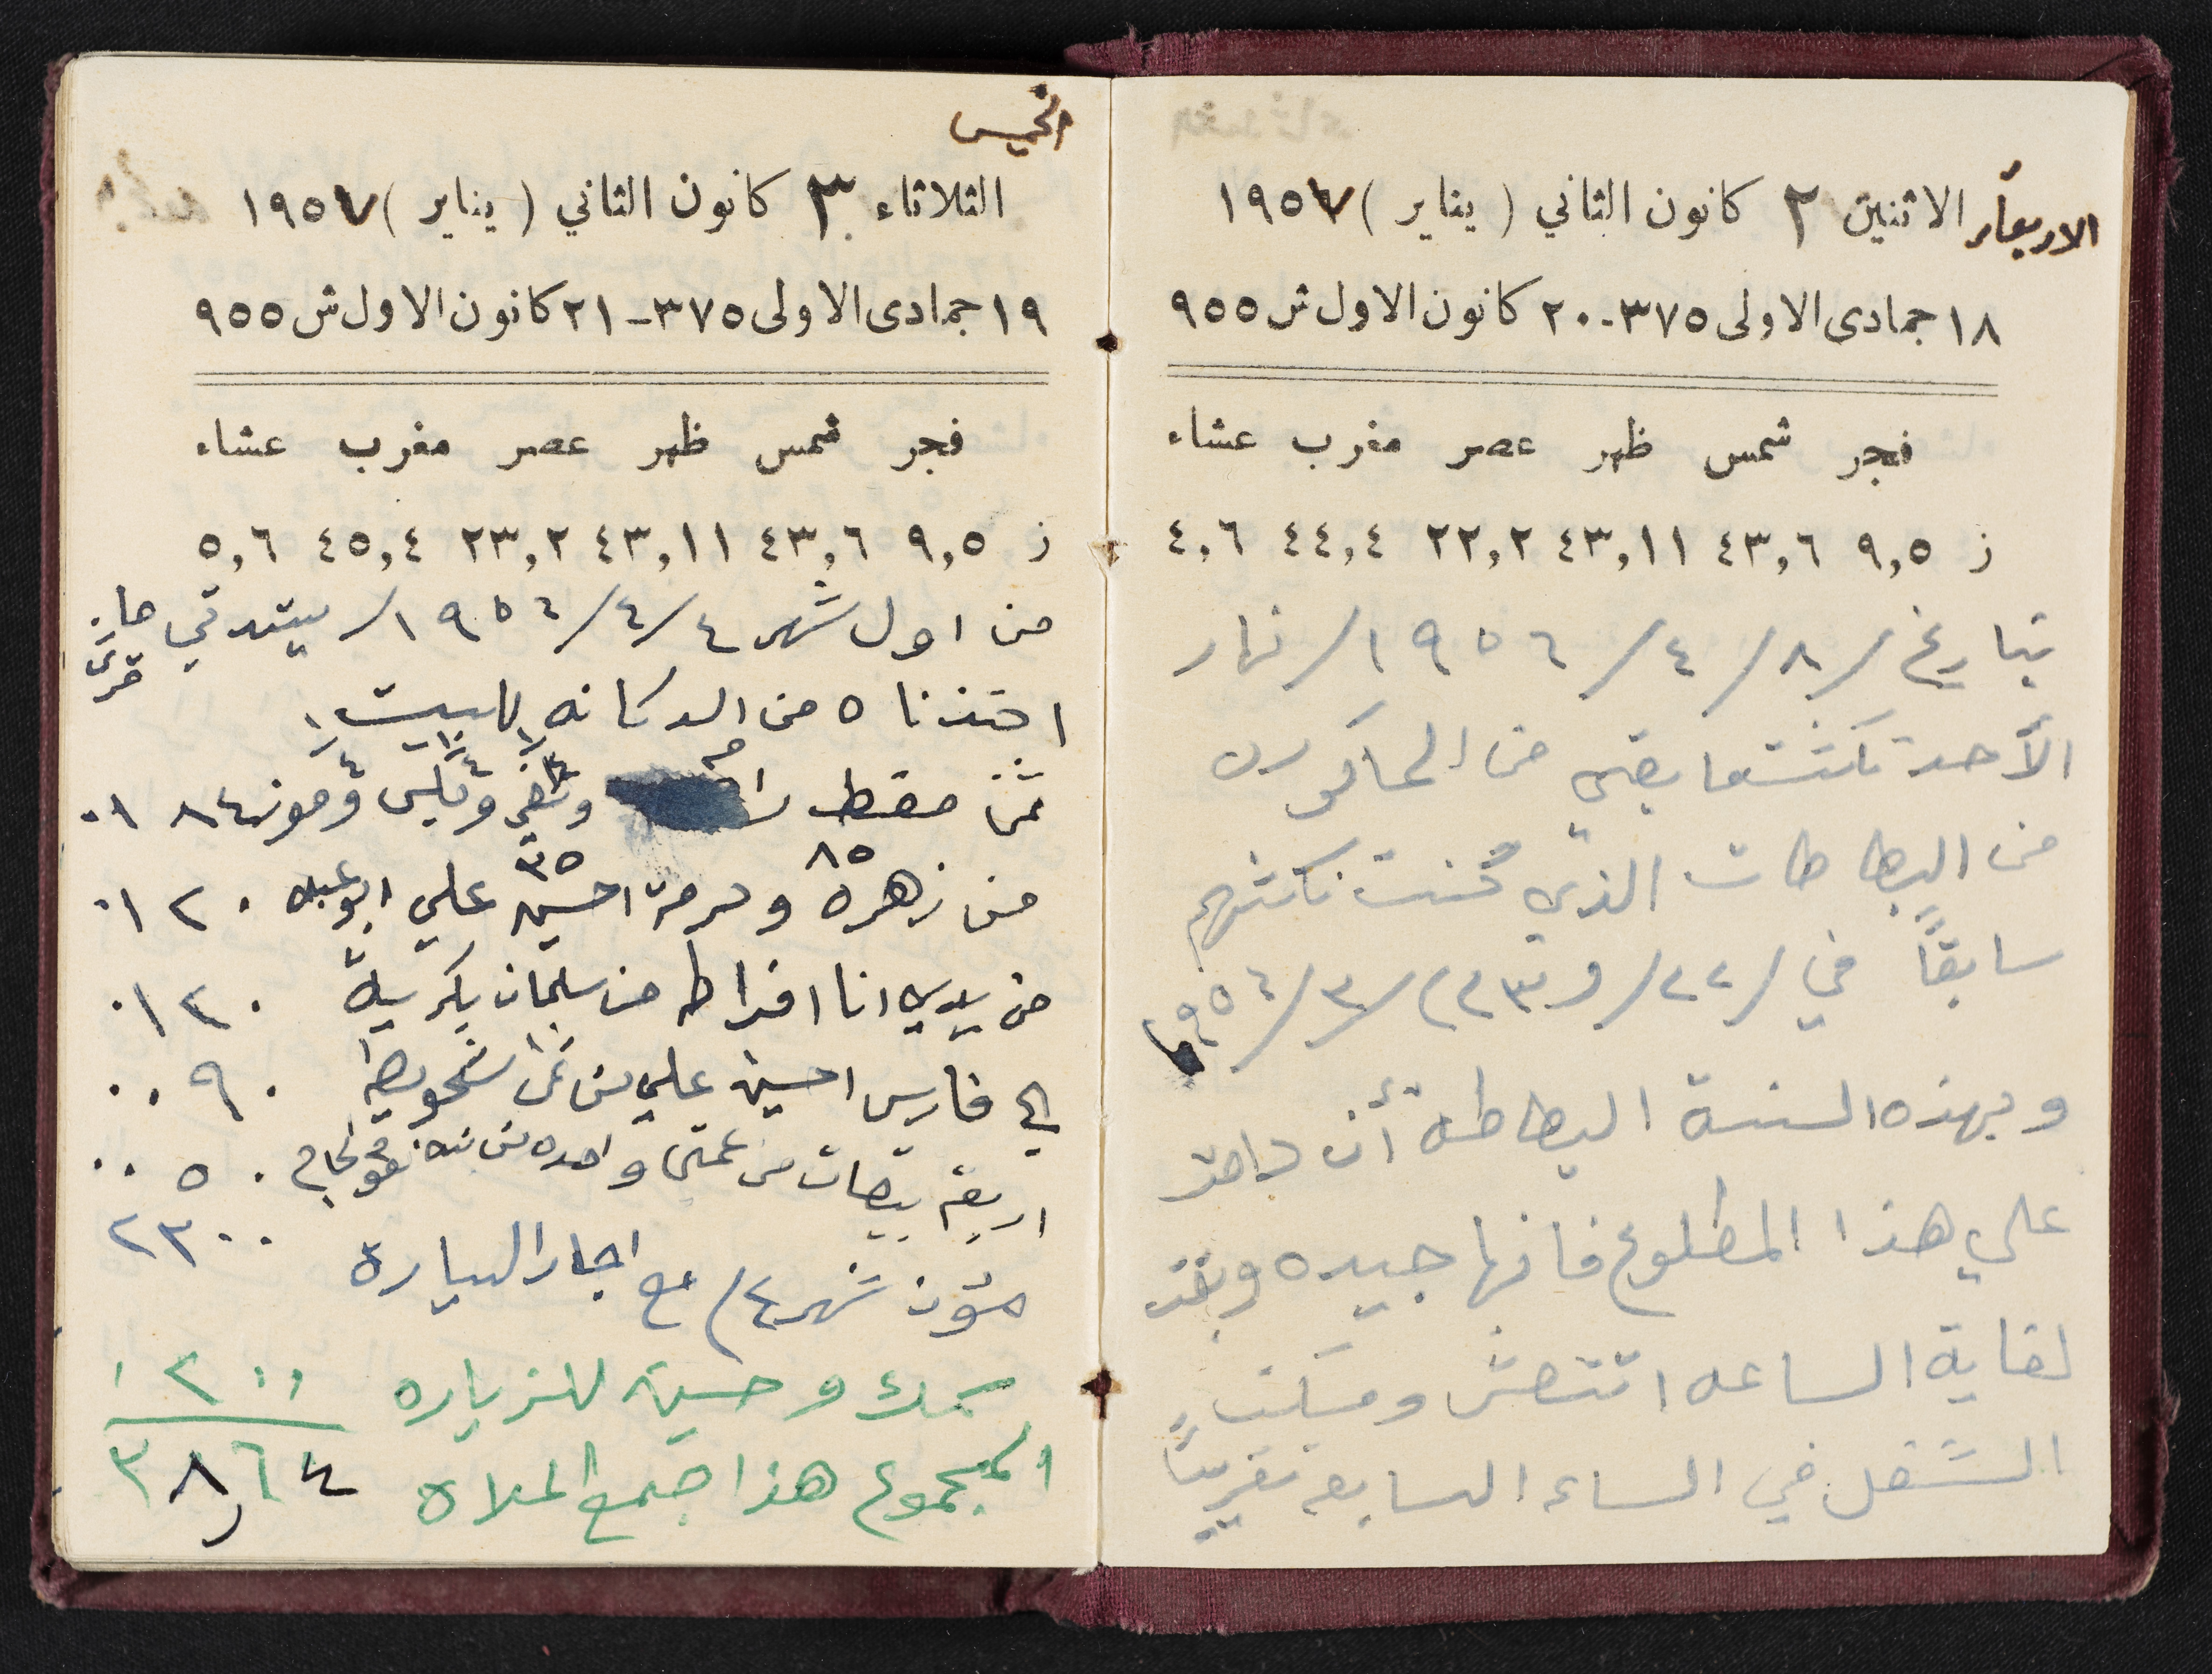 الاربعاء الاثنين ٢ كانون الثاني ( يناير ) ١٩٥٧
١٨ جمادى الاولى ٣٧٥-٢٠ كانون الاول ش ٩٥٥
فجر شمس ظهر عصر مغرب عشاء
ز ٩,٥ ٤٣,٦ ٤٣,١١ ٢٢,٢ ٤٤,٤ ٤,٦
بتاريخ /٨/٤/١٩٥٦/ نهار
الأحد نكشتها بقي من الحاكورن
من البطاطات الذي كنت ناكشهم
سابقاً في /٢٢/و٢٣/٣/٩٥٦
وبهذه السنة البطاطه أن دامت
على هذا المطلوع فانها جيده
لغاية الساعه اتنعش
الشغل في الساعه السابعه تقريباً
الخميس
الثلاثاء ٣ كانون الثاني ( يناير ) ١٩٥٧
١٩ جمادى الاولى ٣٧٥-٢١ كانون الاول ش ٩٥٥
فجر شمس ظهر عصر مغرب عشاء
ز ٩,٥ ٤٣,٦ ٤٣,١١ ٢٣,٢ ٤٥,٤ ٥,٦
من اول شهر ٤/٤/١٩٥٦/
اخذنا ٥ من الدكانه للبيت
ثمن وموز ٠١٨٤
٨٥ ٣٥
من زهره وحرمة احسين علي ابو عبله ٠١٢٠
من يدي انا افراط من سليمان بكريلة ٠١٢٠
الي فارس احسين علي من ثمن ٠٠٩٠
اربعة بيضات من عمتي واحده من ٠٠٥٠
مؤن شهر ٤/ مع اجار السيارة ٢٣٠٠
سمك وحسين للزياره ١٢٠٠
المجموع هذا جمع الملاه ٣٨٦٤